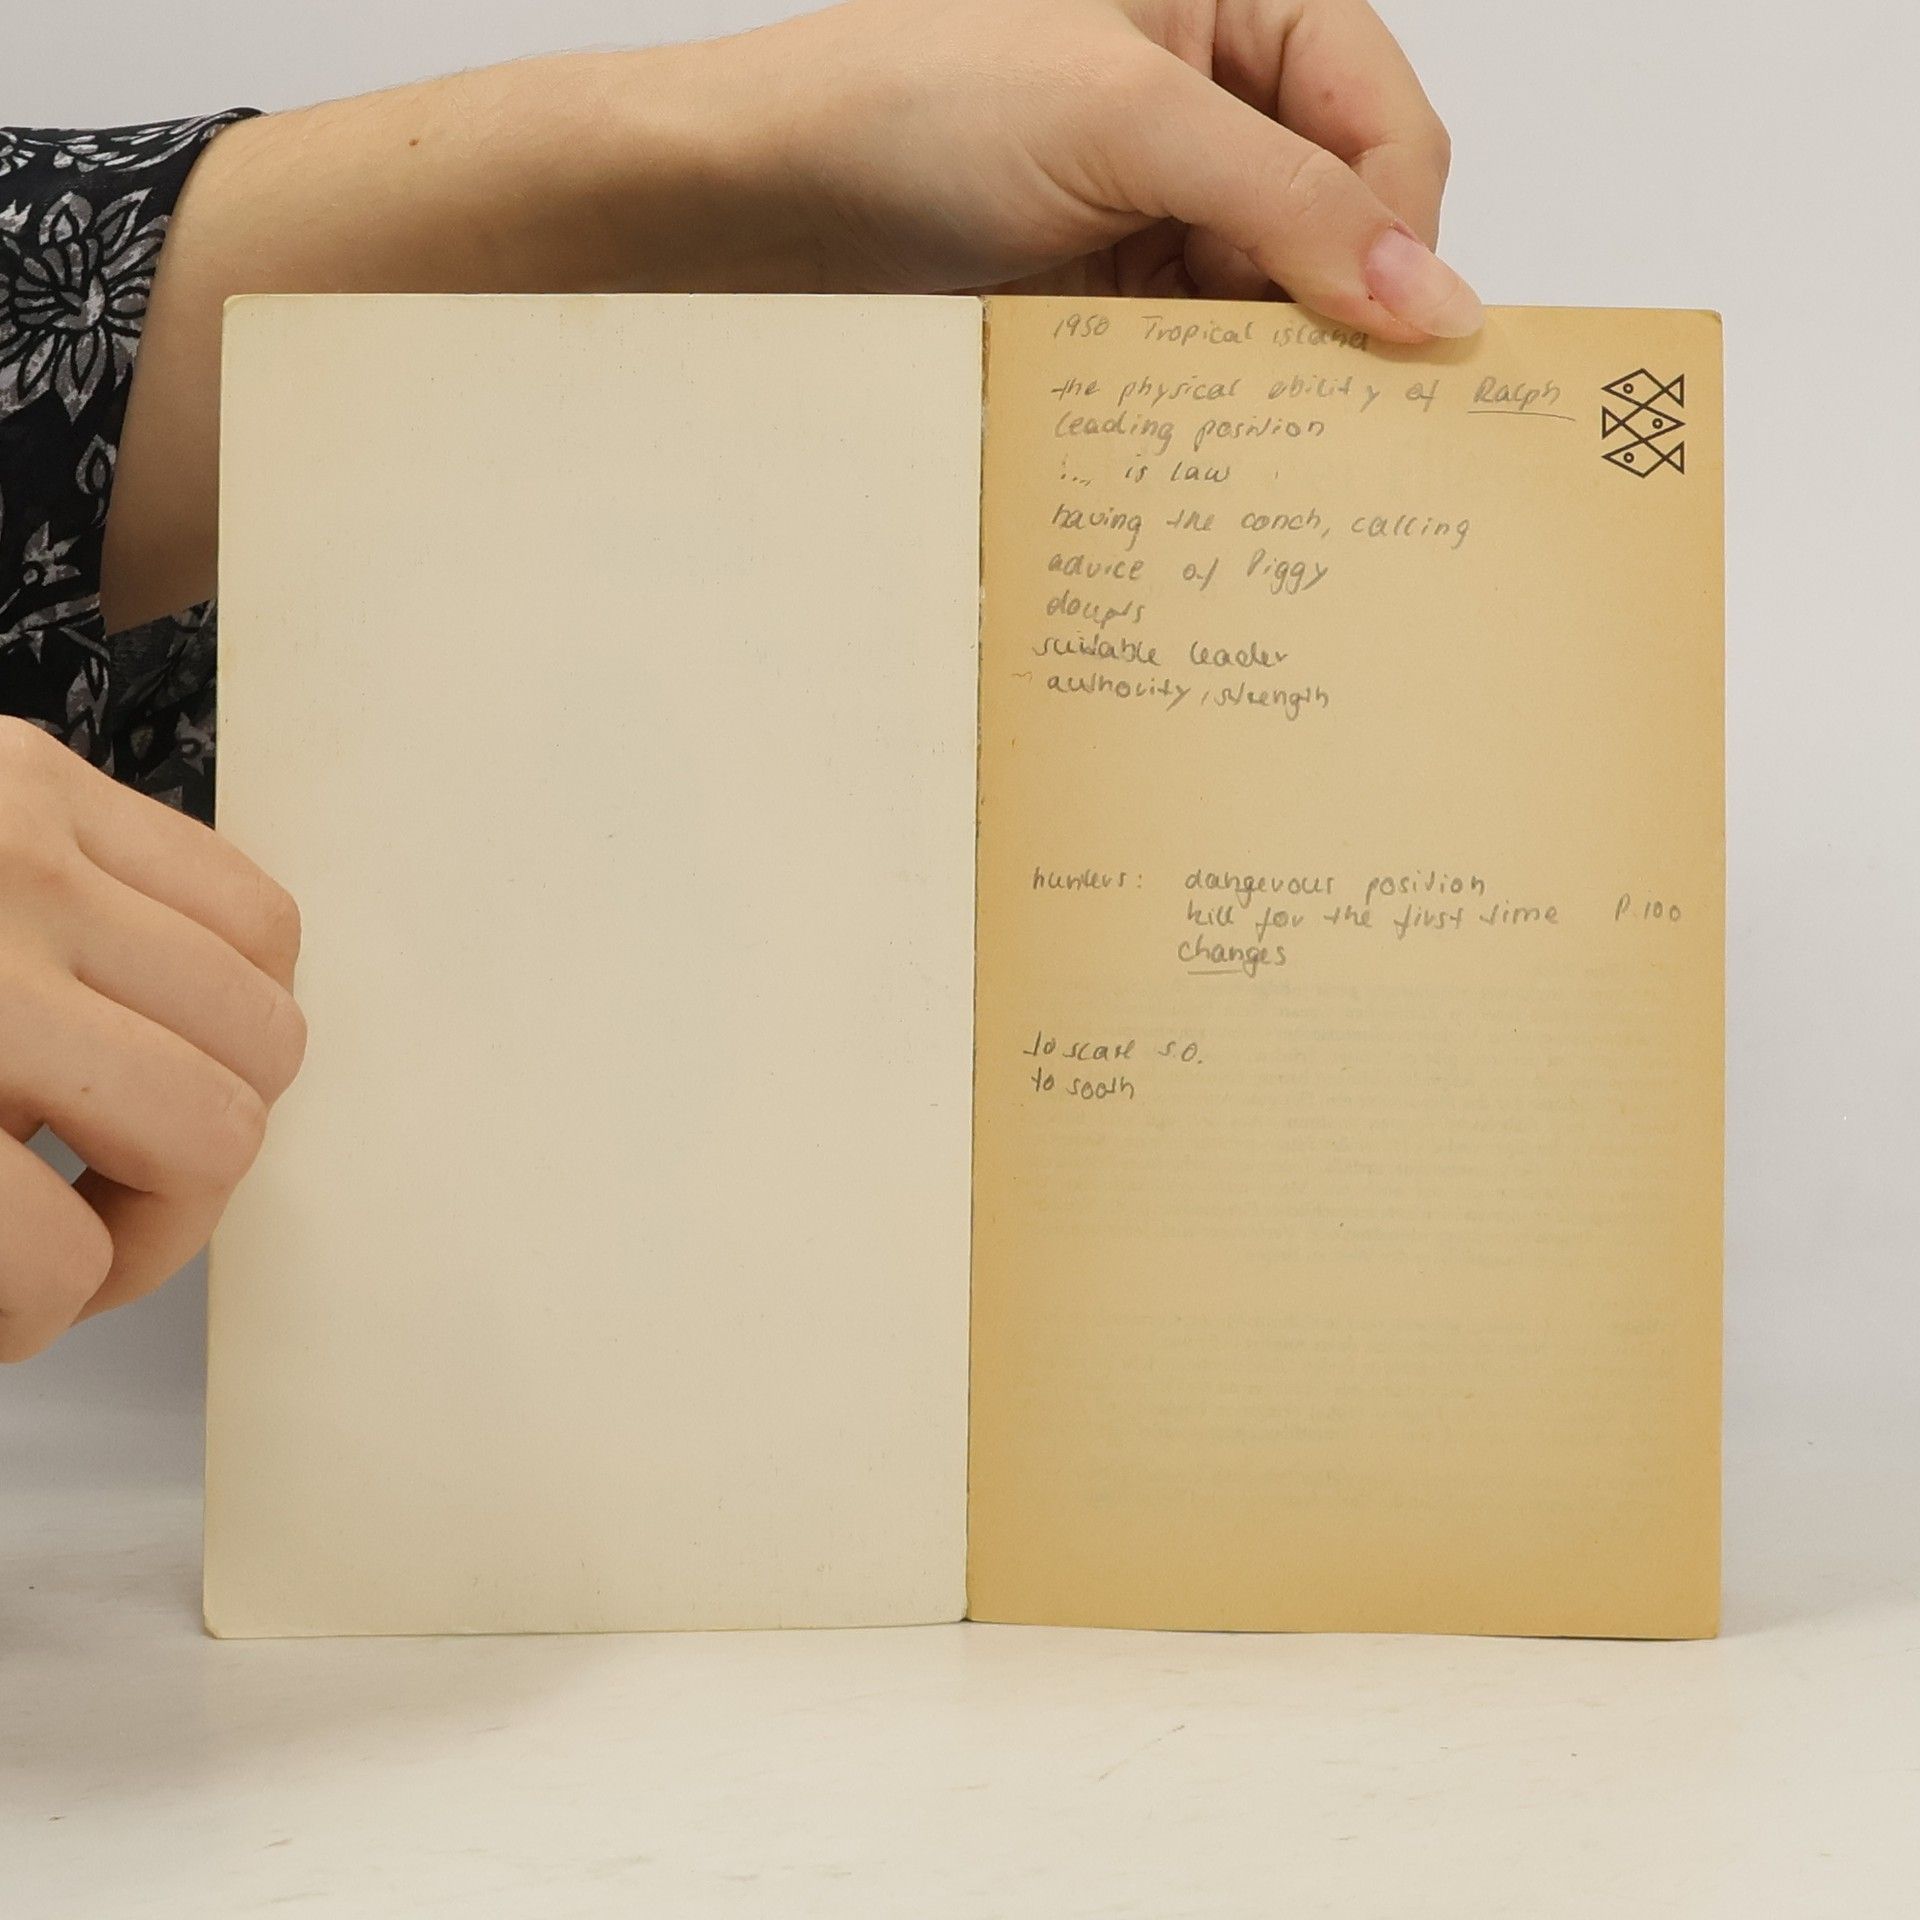 1950 Tropical island
the physical ability of Ralph
leading position
... is law
having the conch, calling
advice of Piggy
doupts
suitable leader
authority, strength
hunters: dangerous position
kill for the first time P. 100
changes
to scare s.o.
to sooth